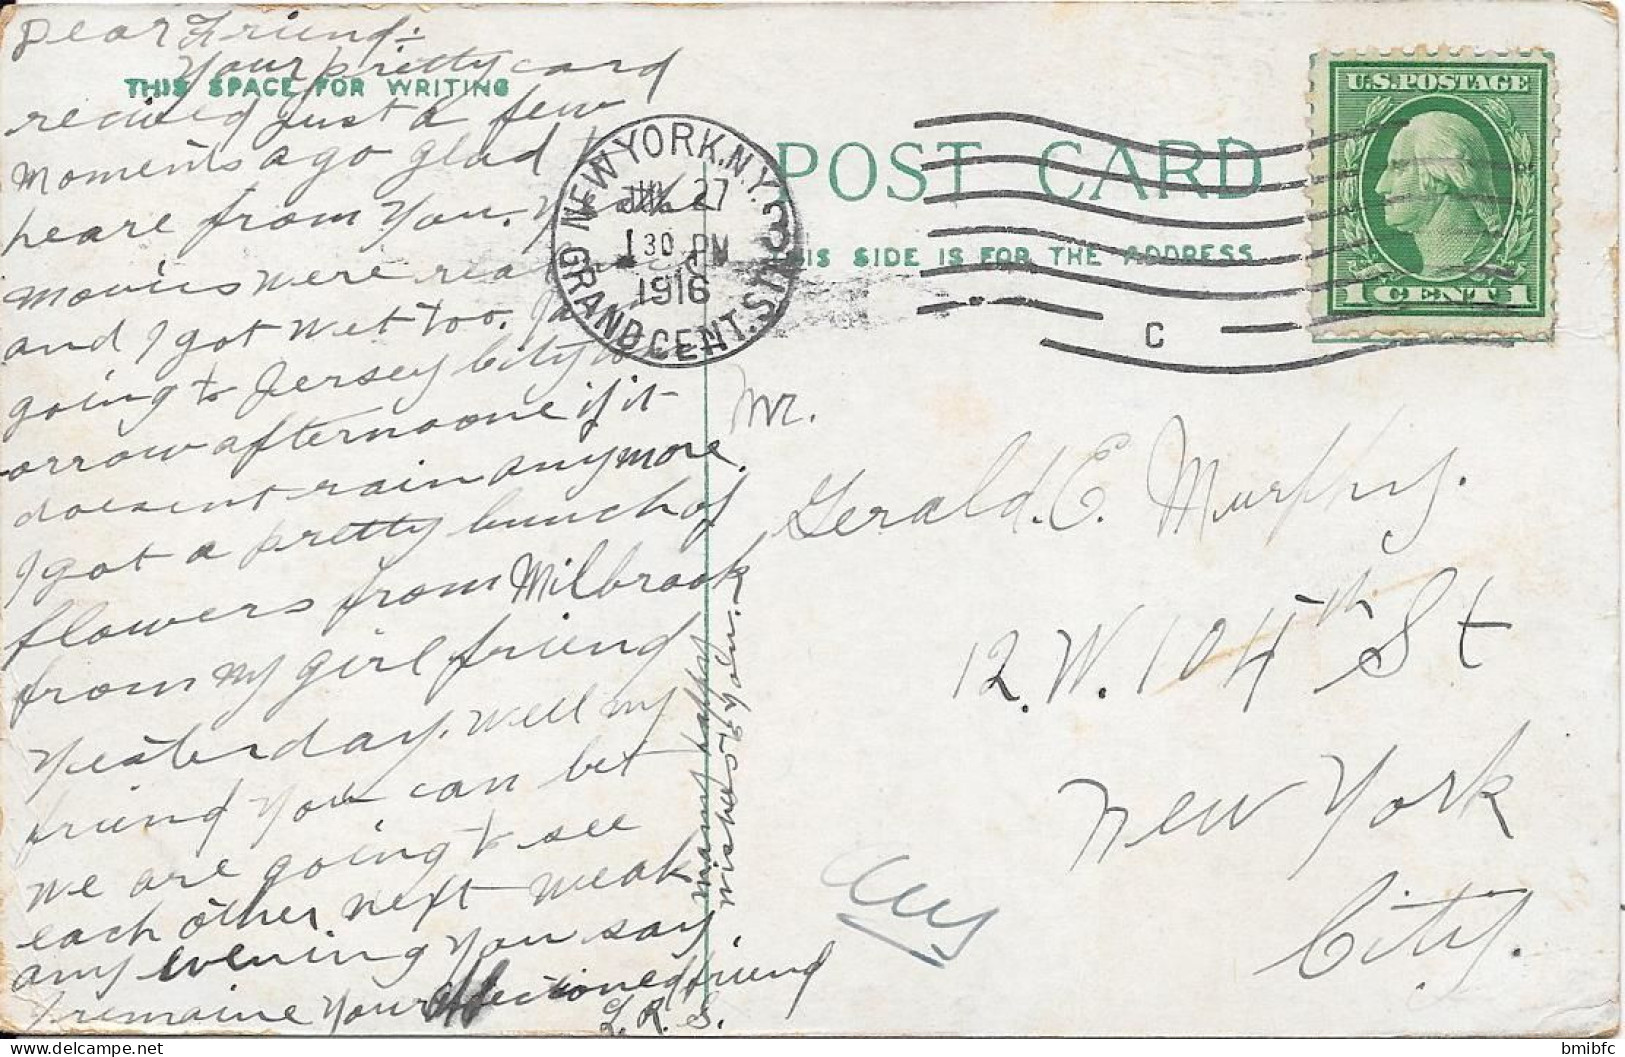 Dear Friend:-
Your pretty card
THIS SPACE FOR WRITING
recived just a few
moments ago glad to
heare from you.
movies were
and I got wet too.
going to Jersey City
orrow afternoone if it
doesent rain anymore.
I got a pretty bunch of
flowers from Milbrook
from my girl friend
yesterday. Well my
friend you can bet
we are going to see
each other next weak
any evening you say.
I remaine your affectioned friend
G. R. S.
many happy
wishes to you.
NEW YORK, N.Y. 3
JUL 27
1 30 PM
1916
GRAND CENT. STA.
POST CARD
THIS SIDE IS FOR THE ADDRESS
C
U.S. POSTAGE
1 CENT 1
Mr.
Gerald. E. Murphy.
12. W. 104th St
New York
City.
bmibfc